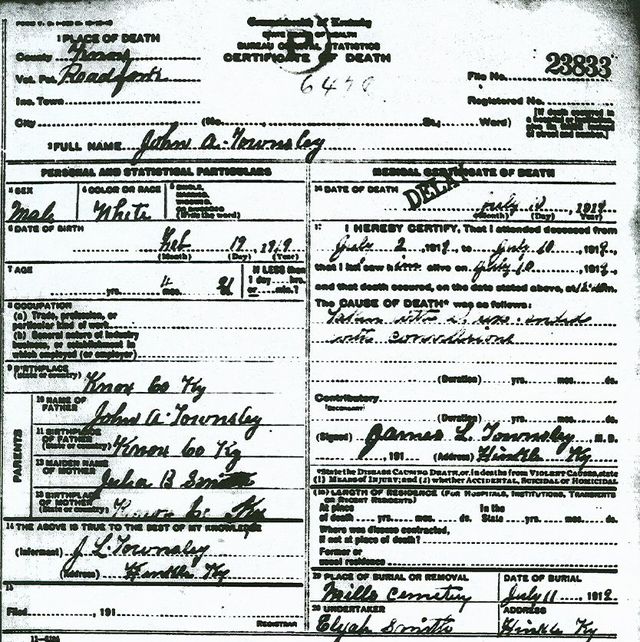 Commonwealth of Kentucky
STATE BOARD OF HEALTH
BUREAU OF VITAL STATISTICS
CERTIFICATE OF DEATH
1 PLACE OF DEATH
County Knox
Vot. Pct.
Inc. Town
City (No. St., Ward)
File No. 23833
Registered No.
[If death occurred in a hospital or institution, give its NAME instead of street and number.]
2 FULL NAME John A. Townsley
PERSONAL AND STATISTICAL PARTICULARS
3 SEX
Male
4 COLOR OR RACE
White
5 SINGLE, MARRIED, WIDOWED, OR DIVORCED (Write the word)
6 DATE OF BIRTH
Feb 19
(Month) (Day) (Year)
7 AGE
yrs. 4 mos.
If LESS than
1 day hrs.
or min.?
8 OCCUPATION
(a) Trade, profession, or
particular kind of work
(b) General nature of industry
business, or establishment in
which employed (or employer)
9 BIRTHPLACE
(State or country) Knox Co Ky
PARENTS
10 NAME OF
FATHER John A Townsley
11 BIRTHPLACE
OF FATHER
(State or country) Knox Co Ky
12 MAIDEN NAME
OF MOTHER Julia B Smith
13 BIRTHPLACE
OF MOTHER
(State or country) Knox Co Ky
14 THE ABOVE IS TRUE TO THE BEST OF MY KNOWLEDGE
(Informant) J L Townsley
(Address) Hinkle Ky
15
Filed , 191
REGISTRAR
MEDICAL CERTIFICATE OF DEATH
DELAY
16 DATE OF DEATH
July
(Month) (Day) (Year)
17 I HEREBY CERTIFY, That I attended deceased from
July 2, 191 to July 10 191
that I last saw him alive on July 10 191
and that death occured, on the date stated above, at m.
The CAUSE OF DEATH* was as follows:
Taken with
with convulsions
(Duration) yrs. mos. ds.
Contributory
(SECONDARY)
(Duration) yrs. mos. ds.
(Signed) James L. Townsley M. D.
, 191 (Address) Hinkle Ky
*State the DISEASE CAUSING DEATH, or, in deaths from VIOLENT CAUSES, state
(1) MEANS OF INJURY; and (2) whether ACCIDENTAL, SUICIDAL or HOMICIDAL
18 LENGTH OF RESIDENCE (FOR HOSPITALS, INSTITUTIONS, TRANSIENTS
OR RECENT RESIDENTS)
At place In the
of death yrs. mos. ds. State yrs. mos. ds.
Where was disease contracted,
if not at place of death?
Former or
usual residence
19 PLACE OF BURIAL OR REMOVAL
Mills Cemetery
DATE OF BURIAL
July 11, 191
20 UNDERTAKER
Elijah Smith
ADDRESS
Hinkle Ky